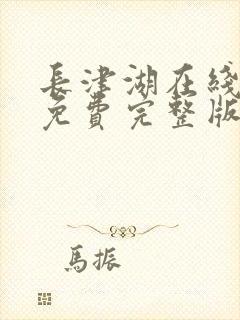 長津湖在綫
免費完整版
馬振